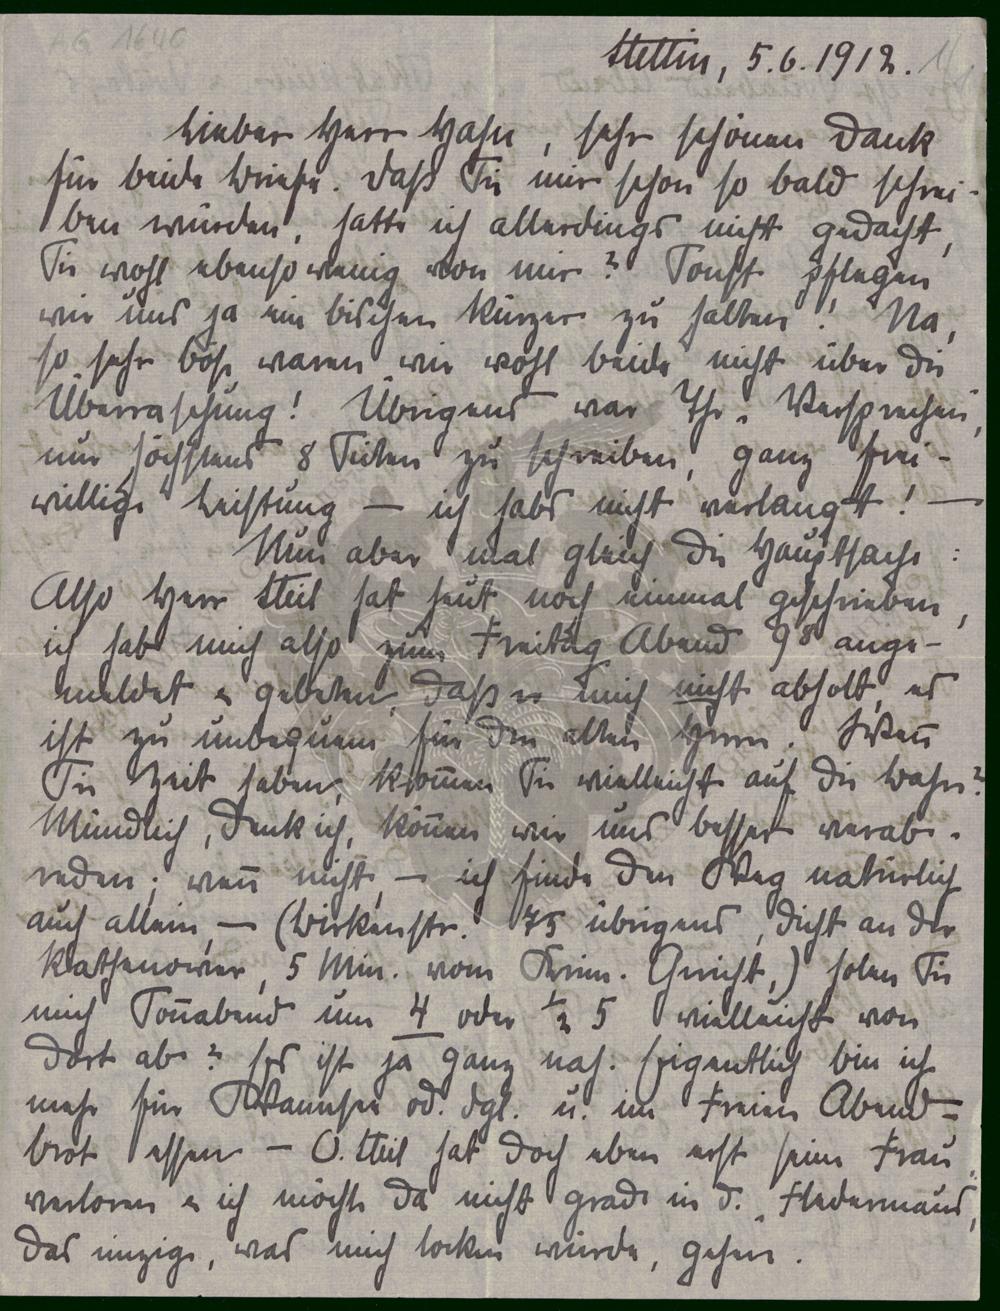 AG 1640
Stettin, 5.6.1912.
Lieber Herr Hahn, sehr schönen Dank
für beide Briefe. Daß Sie mir schon so bald schrei-
ben würden, hatte ich allerdings nicht gedacht,
Sie wohl ebensowenig von mir? Sonst pflegen
wir uns ja ein bischen kürzer zu halten! Na,
so sehr böse waren wir wohl beide nicht über die
Überraschung! Übrigens war Ihr „Versprechen“,
nur höchstens 8 Seiten zu schreiben, ganz frei-
willige Leistung — ich habs nicht verlangt! —
Nun aber mal gleich die Hauptsache:
Also Herr Steil hat heut noch einmal geschrieben,
ich hab mich also zum Freitag Abend 9⁸ ange-
meldet u gebeten, daß er mich nicht abholt, es
ist zu unbequem für den alten Herrn. Wenn
Sie Zeit haben, kommen Sie vielleicht auf die Bahn?
Mündlich, denk ich, können wir uns besser verab-
reden; wenn nicht, — ich finde den Weg natürlich
auch allein, — (Birkenstr. 75 übrigens, dicht an der
Rathenower, 5 Min. vom Krim. Gericht,) holen Sie
mich Sonnabend um 4 oder ½ 5 vielleicht von
dort ab? Es ist ja ganz nah. Eigentlich bin ich
mehr für Wannsee od. dgl. u. im Freien Abend-
brot essen — O. Steil hat doch eben erst seine Frau
verloren u ich möchte da nicht grade in d. „Fledermaus“,
das einzige, was mich locken würde, gehen.